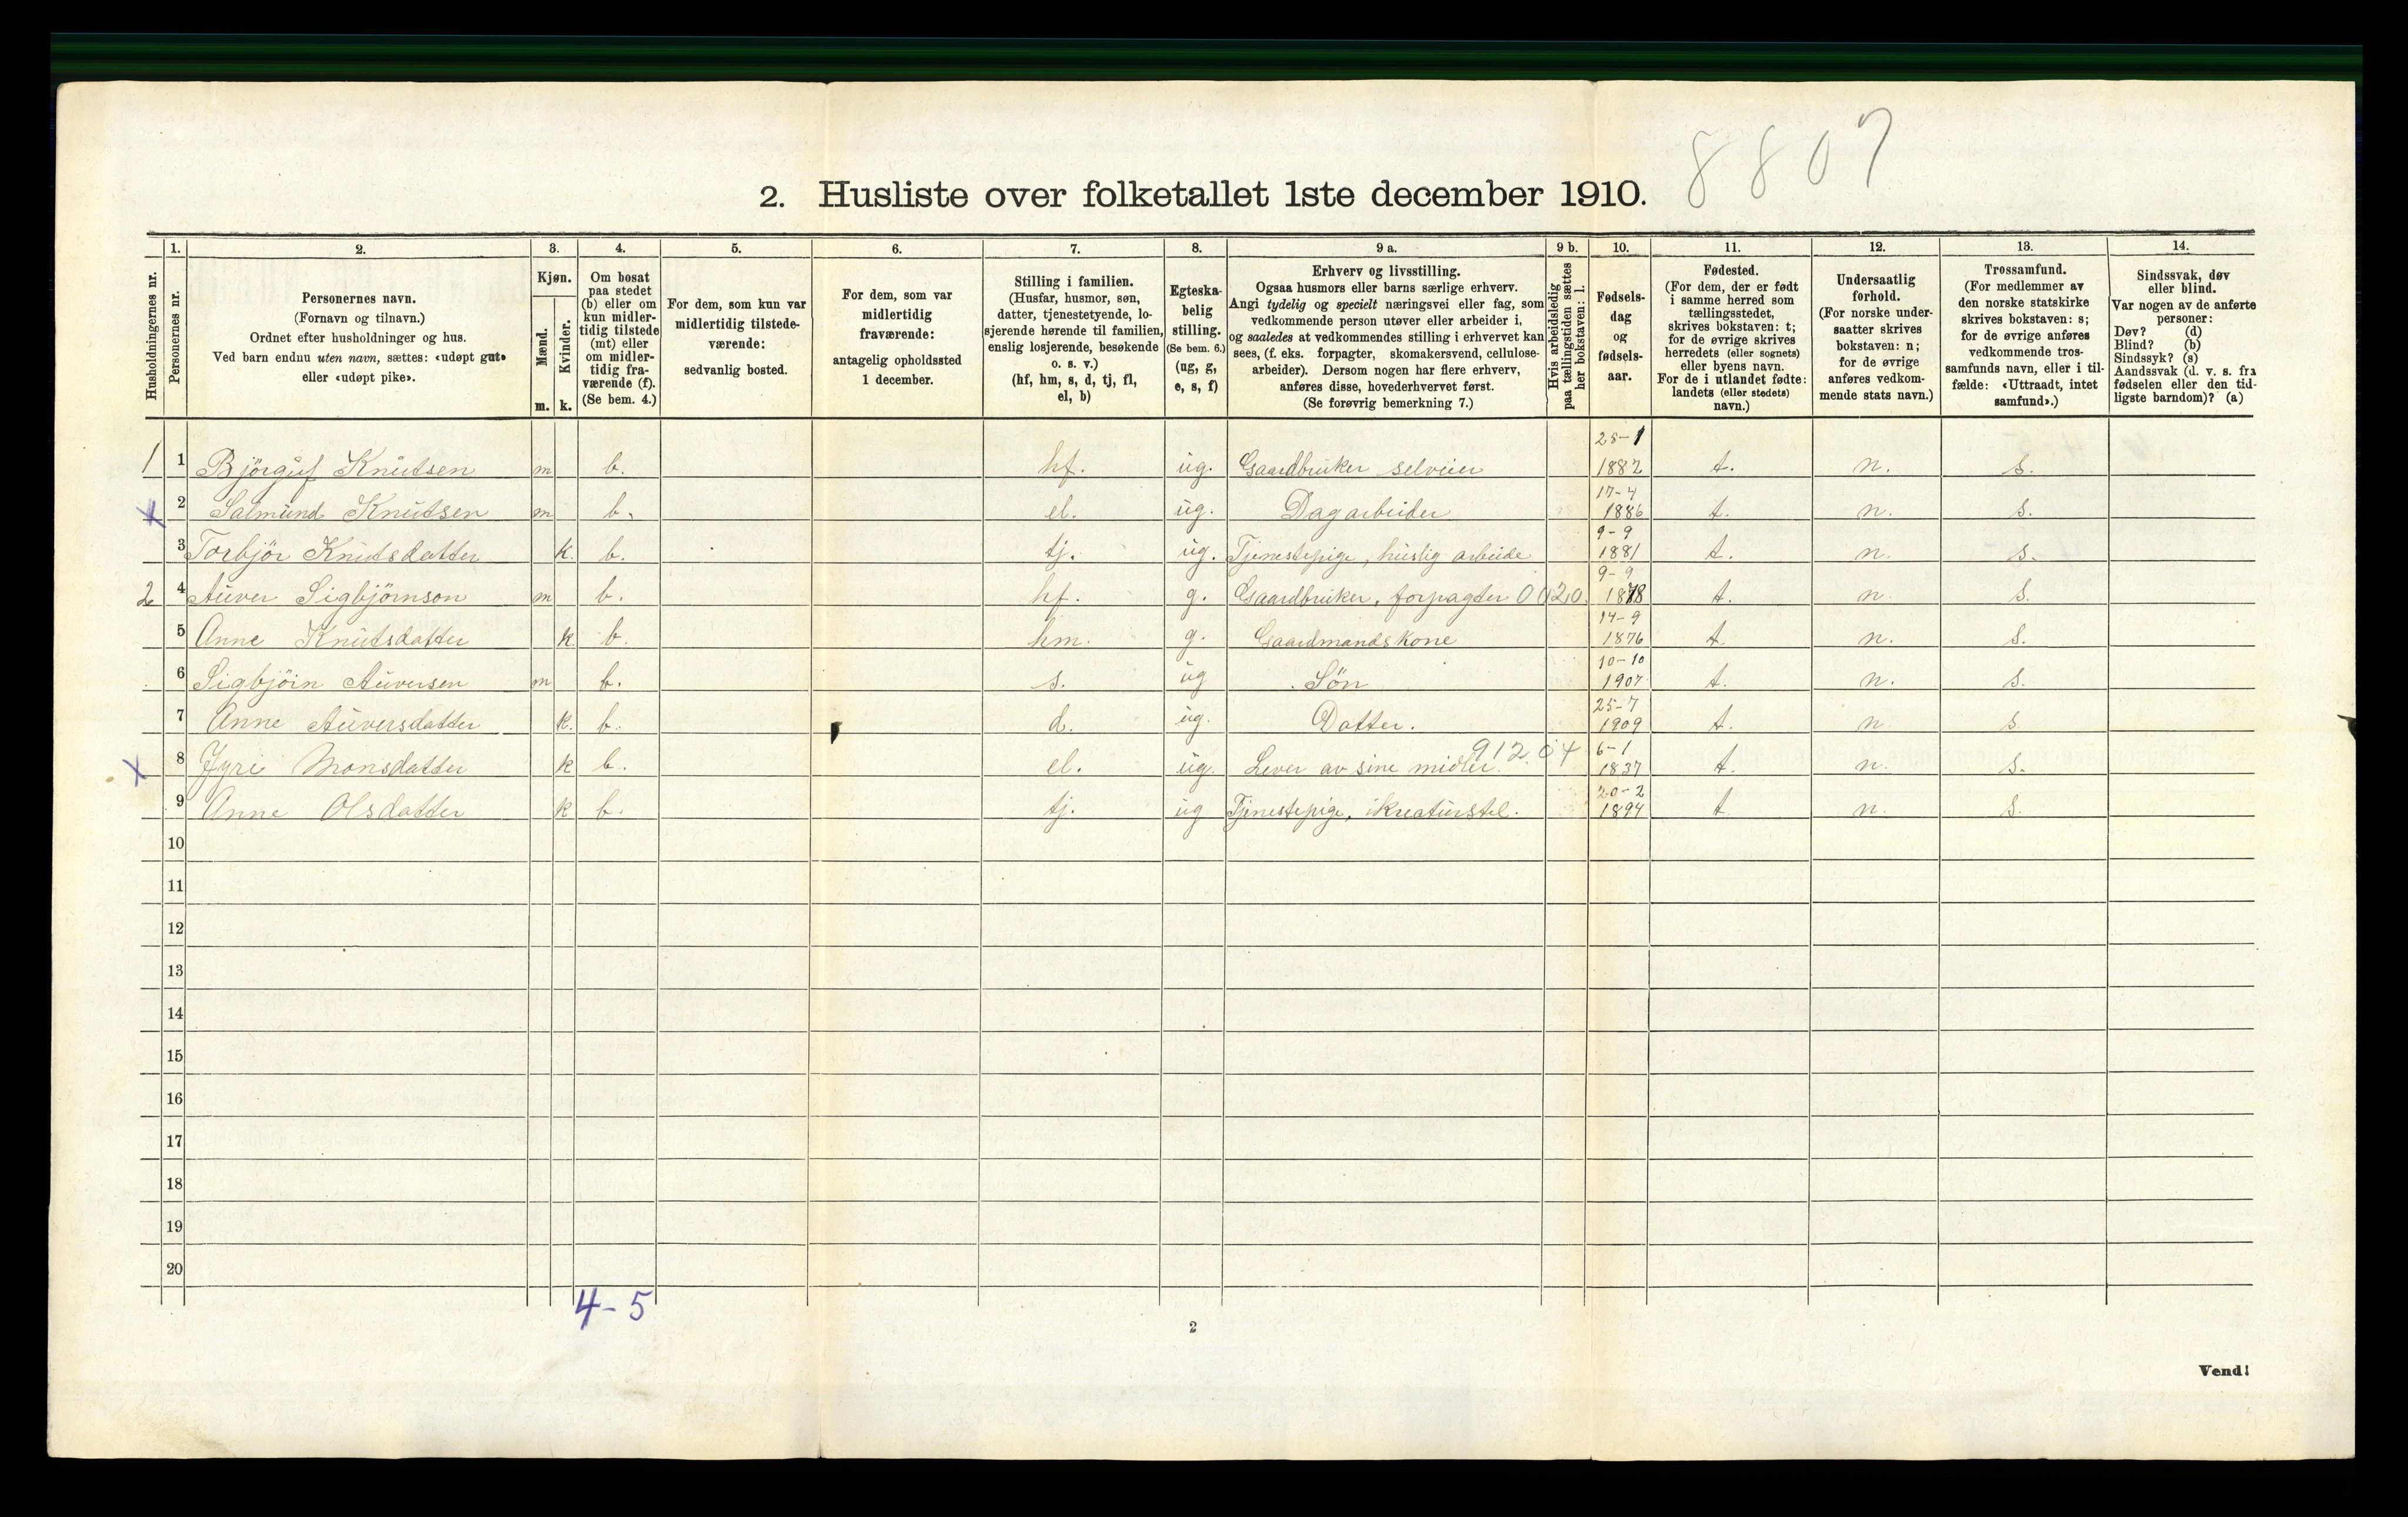 8807
2. Husliste over folketallet 1ste december 1910.
Husholdningernes nr.
1.
Personernes nr.
2.
Personernes navn.
(Fornavn og tilnavn.)
Ordnet efter husholdninger og hus.
Ved barn endnu uten navn, sættes: «udøpt gut»
eller «udøpt pike».
3.
Kjøn.
Mænd.
m.
Kvinder.
k.
4.
Om bosat
paa stedet
(b) eller om
kun midler-
tidig tilstede
(mt) eller
om midler-
tidig fra-
værende (f).
(Se bem. 4.)
5.
For dem, som kun var
midlertidig tilstede-
værende:
sedvanlig bosted.
6.
For dem, som var
midlertidig
fraværende:
antagelig opholdssted
1 december.
7.
Stilling i familien.
(Husfar, husmor, søn,
datter, tjenestetyende, lo-
sjerende hørende til familien,
enslig losjerende, besøkende
o. s. v.)
(hf, hm, s, d, tj, fl,
el, b)
8.
Egteska-
belig
stilling.
(Se bem. 6.)
(ug, g,
e, s, f)
9 a.
Erhverv og livsstilling.
Ogsaa husmors eller barns særlige erhverv.
Angi tydelig og specielt næringsvei eller fag, som
vedkommende person utøver eller arbeider i,
og saaledes at vedkommendes stilling i erhvervet kan
sees, (f. eks. forpagter, skomakersvend, cellulose-
arbeider). Dersom nogen har flere erhverv,
anføres disse, hovederhvervet først.
(Se forøvrig bemerkning 7.)
9 b.
Hvis arbeidsledig
paa tællingstiden sættes
her bokstaven: l.
10.
Fødsels-
dag
og
fødsels-
aar.
11.
Fødested.
(For dem, der er født
i samme herred som
tællingsstedet,
skrives bokstaven: t;
for de øvrige skrives
herredets (eller sognets)
eller byens navn.
For de i utlandet fødte:
landets (eller stedets)
navn.)
12.
Undersaatlig
forhold.
(For norske under-
saatter skrives
bokstaven: n;
for de øvrige
anføres vedkom-
mende stats navn.)
13.
Trossamfund.
(For medlemmer av
den norske statskirke
skrives bokstaven: s;
for de øvrige anføres
vedkommende tros-
samfunds navn, eller i til-
fælde: «Uttraadt, intet
samfund».)
14.
Sindssvak, døv
eller blind.
Var nogen av de anførte
personer:
Døv? (d)
Blind? (b)
Sindssyk? (s)
Aandssvak (d. v. s. fra
fødselen eller den tid-
ligste barndom)? (a)
1 1 Björguf Knutsen m b. hf. ug. Gaardbruker selveier 28-1 1882 t. n. s.
x 2 Salmund Knutsen m b. el. ug. Dagarbeider 17-4 1886 t. n. s.
3 Torbjör Knutsdatter k. b. tj. ug. Tjenestepige, huslig arbeide 9-9 1881 t. n. s.
2 4 Auver Sigbjörnson m b. hf. g. Gaardbruker, forpagter 0020. 9-9 1878 t. n. s.
5 Anne Knutsdatter k b. hm. g. Gaardmandskone 14-9 1876 t n. s.
6 Sigbjörn Auversen m b. s. ug Søn 10-10 1907 t. n. s.
7 Anne Auversdatter k. b. d. ug. Datter. 25-7 1909 t. n s.
x 8 Jyri Monsdatter k b. el. ug. Lever av sine midler. 912.04 6-1 1837 t. n. s.
9 Anne Olsdatter k b. tj. ug Tjenestepige, i kreaturstel. 20-2 1894 t n. s.
10
11
12
13
14
15
16
17
18
19
20
4-5
2
Vend!